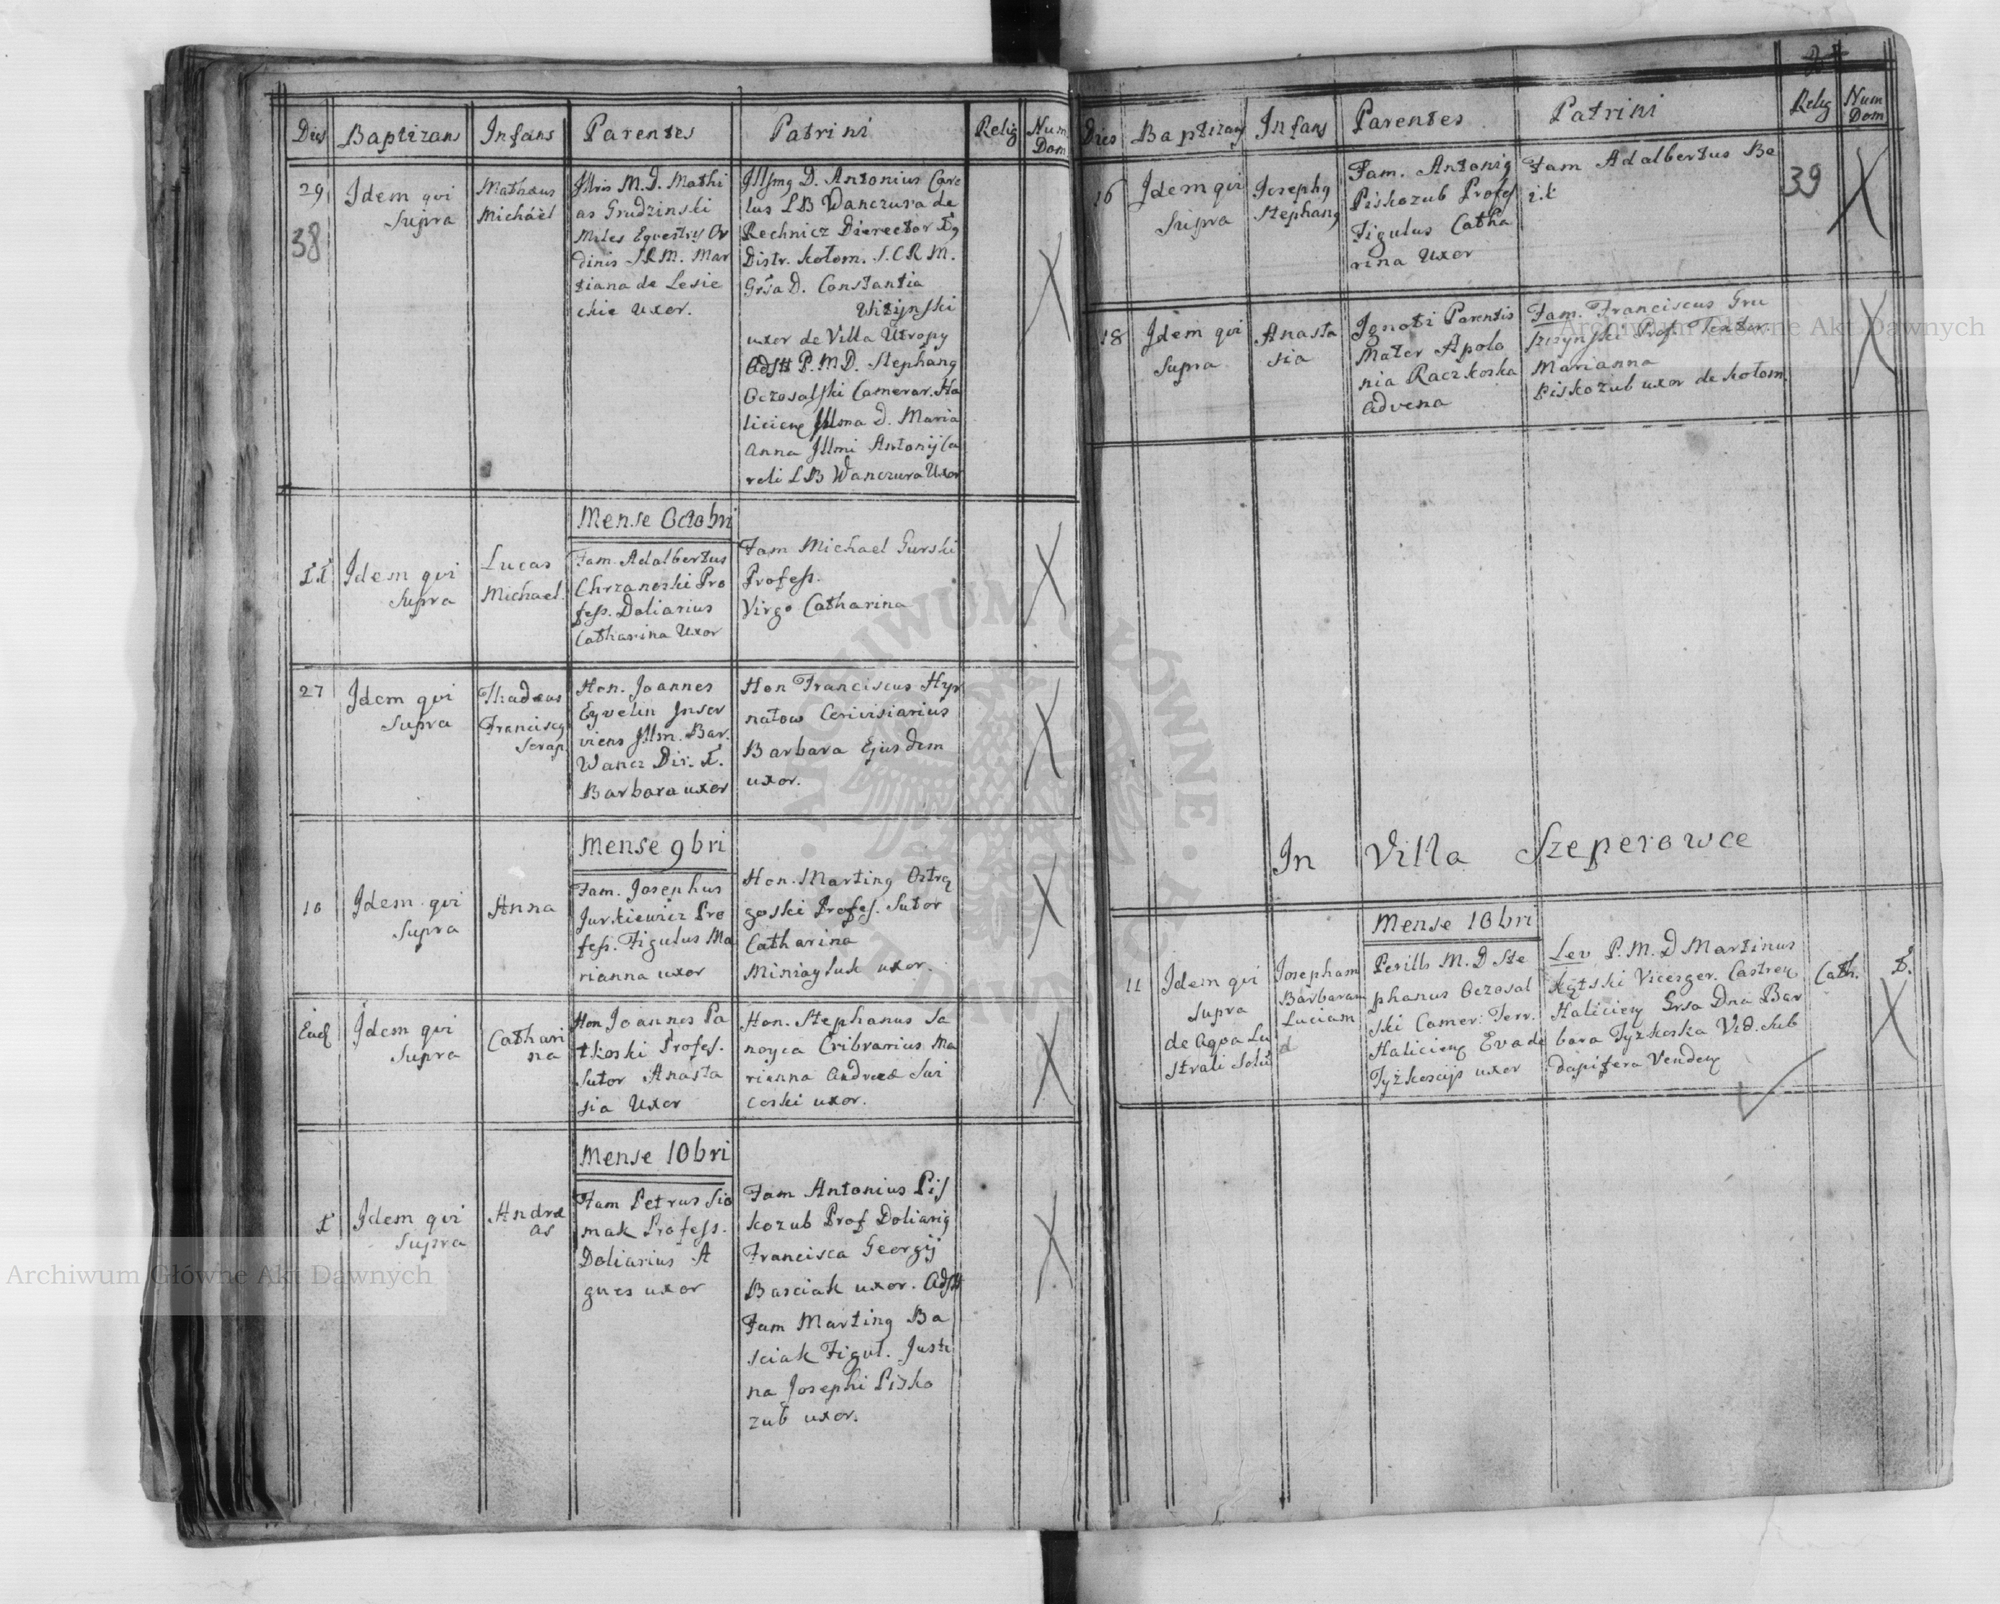 Dies Baptizans Infans Parentes Patrini Relig Num Dom
29
38
Idem qvi
Supra
Mathæus
Michäel
Illris M. D. Mathi
as Grudzinski
Miles Eqvestris Or
dinis S.R.M. Mar
tiana de Lesie
ckie Uxor.
D. Antonius Caro
lus LB Wanczura de
Rechnicz Dierector
Distr. Kołom. S.C.R.M.
D. Constantia
uxor de Villa Utropy
Adstt P. M. D. Stephang
Oczosalski Camerar. Ha
liciens Illma D. Maria
Anna Illmi Antonij Ca
roli LB Wanczura Uxor
Mense Octobri
Idem qvi
Supra
Lucas
Michael.
Fam. Adalbertus
Chrzanoski Pro
fess. Doliarius
Catharina Uxor
Fam Michael Gurski
Profess.
Virgo Catharina
27
Idem qvi
Supra
Thadæus
Franciscg
Serap.
Hon. Joannes
Eyvelin Inser
viens Illm. Bar.
Wancz Dir.
Barbara uxor
Hon Franciscus Hyr
natow Cerivisiarius
Barbara Ejusdem
uxor.
Mense 9bri
10
Idem qvi
Supra
Anna
Fam. Josephus
Jurkiewicz Pro
fess. Figulus Ma
rianna uxor
Hon. Marting Ostrę
goski Profes. Sutor
Catharina
uxor.
Idem qvi
Supra
Cathari
na
Hon Joannes Pa
tkoski Profes.
Sutor Anasta
sia Uxor
Hon. Stephanus Sa
noyca Cribrarius Ma
rianna Andreæ Sui
coski uxor.
Mense 10bri
Idem qvi
Supra
Andre
as
Fam Petrus Sio
mak Profess.
Doliarius A
gnes uxor
Fam Antonius Pis
kozub Prof Doliarig
Francisca Georgij
Basciak uxor. Adstt
Fam Marting Ba
sciak Figul. Justi
na Josephi Pisko
zub uxor.
Dies Baptizans Infans Parentes Patrini Relig Num Dom
16
Idem qvi
Supra
Josephg
Stephang
Fam. Antonig
Piskozub Profes
Figulus Catha
rina Uxor
Fam Adalbertus Be
39
18
Idem qvi
Supra
Anasta
sia
Ignoti Parentis
Mater Apolo
nia Raczkoska
Advena
Fam. Franciscus Gru
szczynski Prof. Textor.
Marianna
Piskozub uxor de Kołom.
In Villa Szeperowce
Mense 10bri
11
Idem qvi
Supra
de Aqva Lu
strali Solũ
Josepham
Barbaram
Luciam
Perills M. D Ste
phanus Oczosal
ski Camer: Terr.
Haliciens Eva de
uxor
Lev P. M. D Martinus
Vicesger. Castren
Haliciens Grsa Dna Bar
bara Tyzkoska Vid. Sub
dapifera Venden
Cath.
Archiwum Główne Akt Dawnych
Archiwum Główne Akt Dawnych
ARCHIWUM GŁÓWNE AKT DAWNYCH